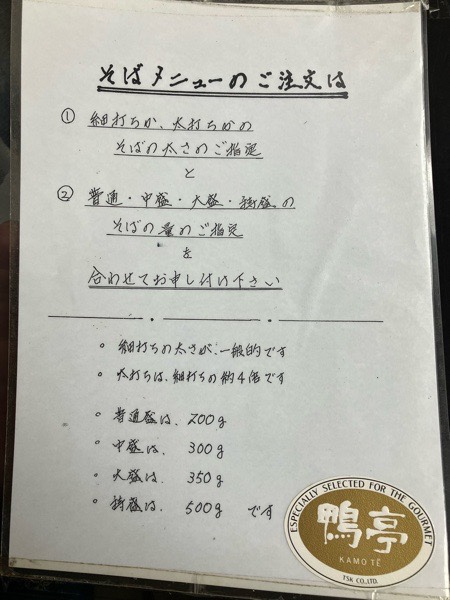 そばメニューのご注文は
① 細打ちか、太打ちかの
そばの太さのご指定
と
② 普通・中盛・大盛・特盛の
そばの量のご指定
を
合わせてお申し付け下さい
。細打ちの太さが、一般的です
。太打ちは、細打ちの約4倍です
。普通盛は、200g
。中盛は、300g
。大盛は、350g
。特盛は、500g です
ESPECIALLY SELECTED FOR THE GOURMET
鴨亭
KAMO TÊ
TSK CO.,LTD.